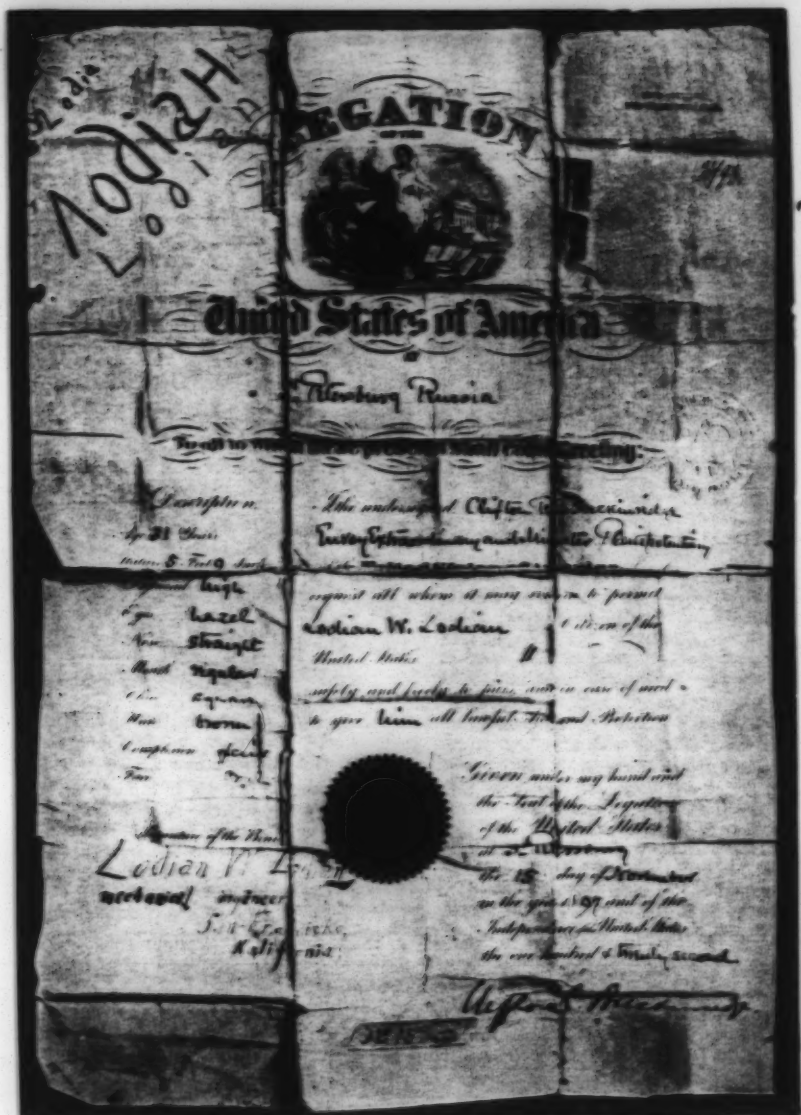 Lodia
Лodiaн
Lodian
LEGATION
OF THE
United States of America
at
Petersburg Russia
To all to whom these presents shall come Greeting:
Description
Age 31 Years
5 Feet 9
high
Eyes hazel
Nose straight
Mouth regular
Chin square
Hair brown
Complexion
Face
Signature of the Bearer
Lodian W Lodian
mechanical engineer
San Francisko
Kalifornia
I the undersigned Clifton R. Breckinridge
Envoy Extraordinary and Minister Plenipotentiary
request all whom it may concern to permit
Lodian W. Lodian Citizen of the
United States
safely and freely to pass and in case of need
to give him all lawful Aid and Protection
Given under my hand and
the Seal of the Legation
of the United States
at St. Petersburg
the 15 day of December
in the year 1897 and of the
Independence of the United States
the one hundred & twenty second